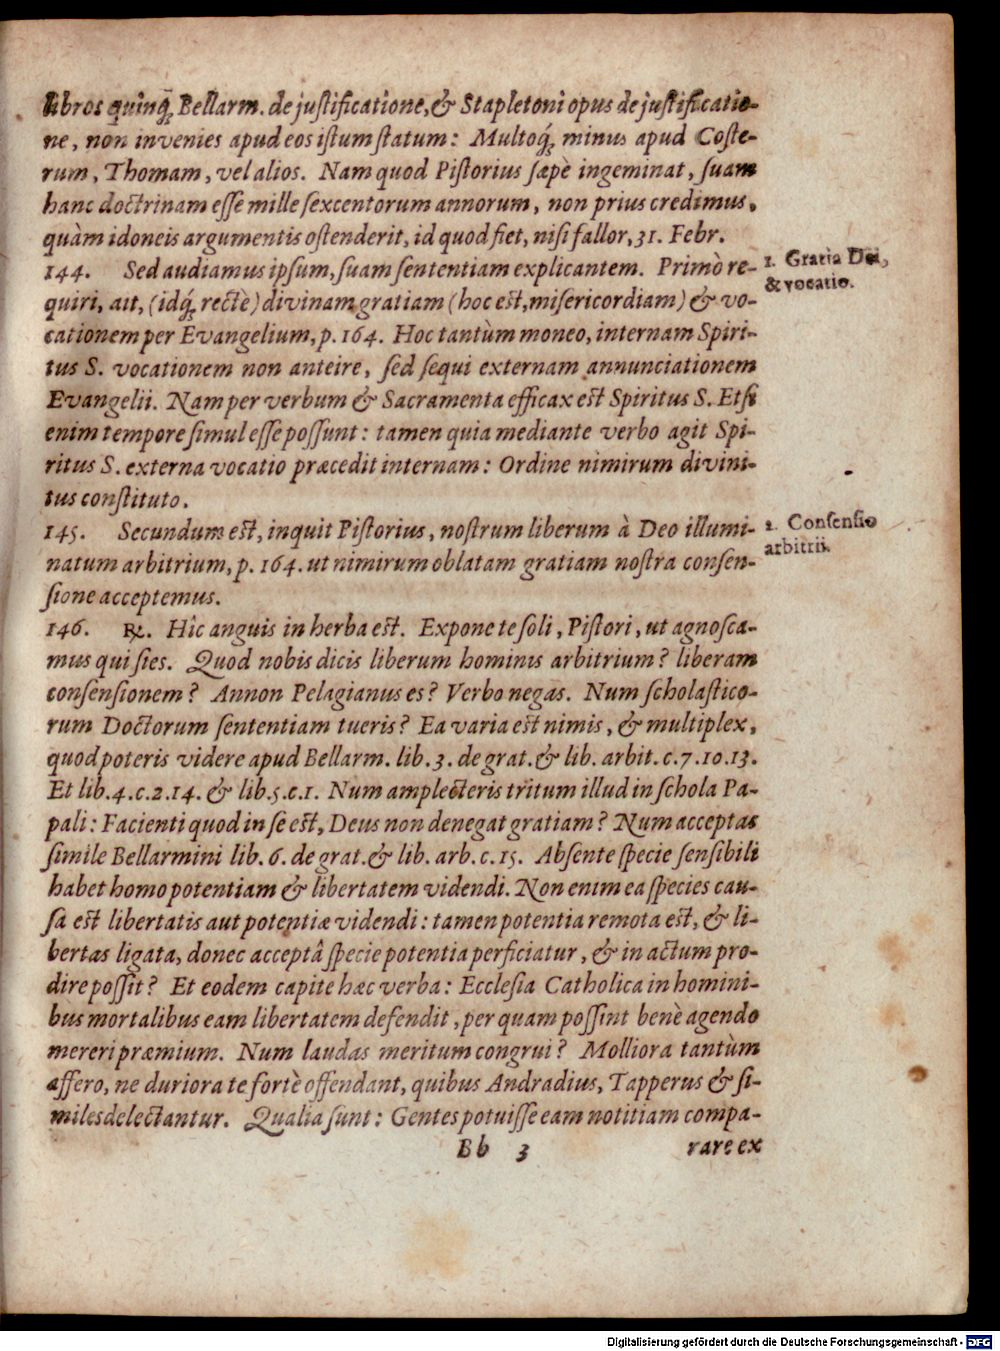 libros quinq́; Bellarm. de justificatione, & Stapletoni opus de justificatio-
ne, non invenies apud eos istum statum: Multoq́; minus apud Coste-
rum, Thomam, vel alios. Nam quod Pistorius sæpè ingeminat, suam
hanc doctrinam esse mille sexcentorum annorum, non prius credimus,
quàm idoneis argumentis ostenderit, id quod fiet, nisi fallor, 31. Febr.
144. Sed audiamus ipsum, suam sententiam explicantem. Primò re-
quiri, ait, (idq́; rectè) divinam gratiam (hoc est, misericordiam) & vo-
cationem per Evangelium, p. 164. Hoc tantùm moneo, internam Spiri-
tus S. vocationem non anteire, sed sequi externam annunciationem
Evangelii. Nam per verbum & Sacramenta efficax est Spiritus S. Etsi
enim tempore simul esse possunt: tamen quia mediante verbo agit Spi-
ritus S. externa vocatio præcedit internam: Ordine nimirum divini-
tus constituto.
1. Gratia Dei,
& vocatio.
145. Secundum est, inquit Pistorius, nostrum liberum à Deo illumi-
natum arbitrium, p. 164. ut nimirum oblatam gratiam nostra consen-
sione acceptemus.
2. Consensio
arbitrii.
146. ℞. Hîc anguis in herba est. Expone te soli, Pistori, ut agnosca-
mus qui sies. Quod nobis dicis liberum hominis arbitrium? liberam
consensionem? Annon Pelagianus es? Verbo negas. Num scholastico-
rum Doctorum sententiam tueris? Ea varia est nimis, & multiplex,
quod poteris videre apud Bellarm. lib. 3. de grat. & lib. arbit. c. 7. 10. 13.
Et lib. 4. c. 2. 14. & lib. 5. c. 1. Num amplecteris tritum illud in schola Pa-
pali: Facienti quod in se est, Deus non denegat gratiam? Num acceptas
simile Bellarmini lib. 6. de grat. & lib. arb. c. 15. Absente specie sensibili
habet homo potentiam & libertatem videndi. Non enim ea species cau-
sa est libertatis aut potentiæ videndi: tamen potentia remota est, & li-
bertas ligata, donec acceptâ specie potentia perficiatur, & in actum pro-
dire possit? Et eodem capite hæc verba: Ecclesia Catholica in homini-
bus mortalibus eam libertatem defendit, per quam possint benè agendo
mereri præmium. Num laudas meritum congrui? Molliora tantùm
affero, ne duriora te fortè offendant, quibus Andradius, Tapperus & si-
miles delectantur. Qualia sunt: Gentes potuisse eam notitiam compa-
Bb 3 rare ex
Digitalisierung gefördert durch die Deutsche Forschungsgemeinschaft - DFG